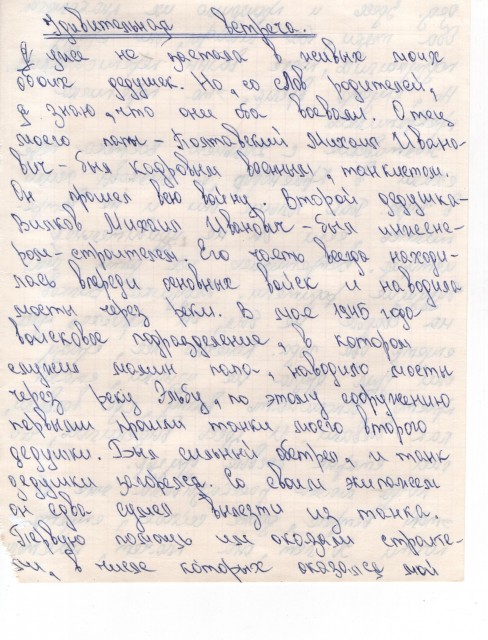 Удивительная встреча.
Я уже не застала в живых моих
обоих дедушек. Но, со слов родителей,
я знаю, что они оба воевали. Отец
моего папы – Полтавский Михаил Ивано-
вич – был кадровым военным, танкистом.
Он прошел всю войну. Второй дедушка –
Вилков Михаил Иванович – был инжене-
ром-строителем. Его часть всегда находи-
лась впереди основных войск и наводила
мосты через реки. В мае 1945 года
войсковое подразделение, в котором
служил мамин папа, наводило мосты
через реку Эльбу, по этому сооружению
первыми прошли танки моего второго
дедушки. Был сильный обстрел, и танк
дедушки загорелся. Со своим экипажем
он едва сумел вылезти из танка.
Первую помощь им оказали строите-
ли, в числе которых оказался мой